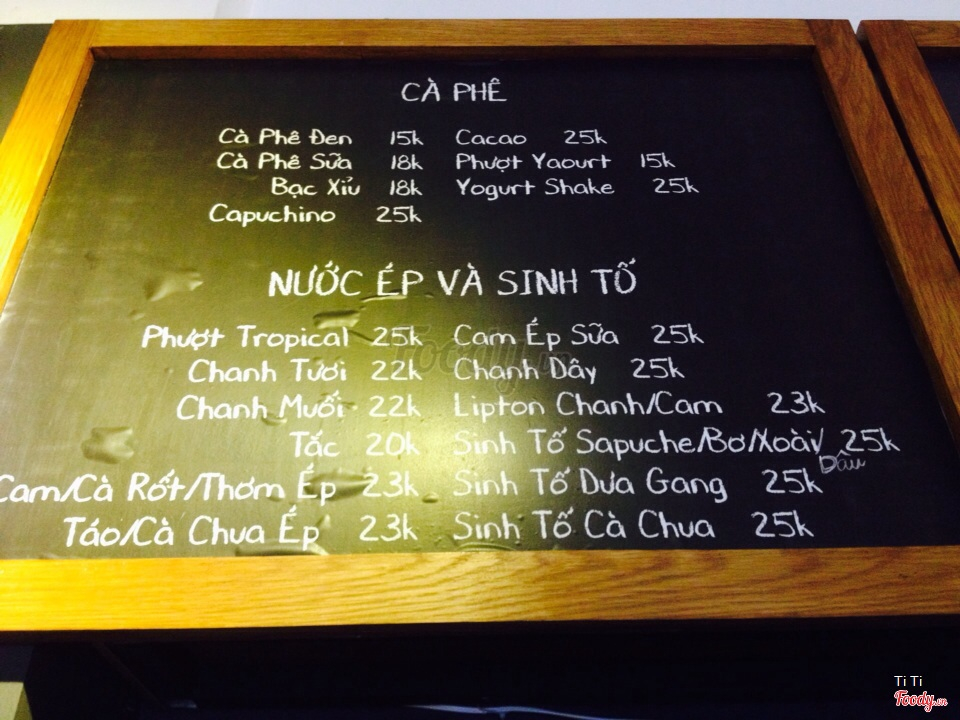 CÀ PHÊ
Cà Phê Đen 15k Cacao 25k
Cà Phê Sữa 18k Phượt Yaourt 15k
Bạc Xỉu 18k Yogurt Shake 25k
Capuchino 25k
NƯỚC ÉP VÀ SINH TỐ
Phượt Tropical 25k Cam Ép Sữa 25k
Chanh Tươi 22k Chanh Dây 25k
Chanh Muối 22k Lipton Chanh/Cam 23k
Tắc 20k Sinh Tố Sapuche/Bơ/Xoài/ 25k
Dâu
Cam/Cà Rốt/Thơm Ép 23k Sinh Tố Dưa Gang 25k
Táo/Cà Chua Ép 23k Sinh Tố Cà Chua 25k
Foody.vn
Ti Ti
Foody.vn